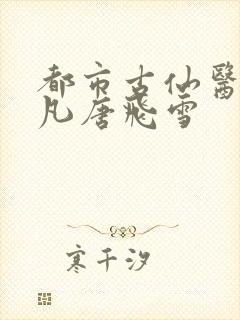 都市古仙醫
凡唐飛雪
寒千汐